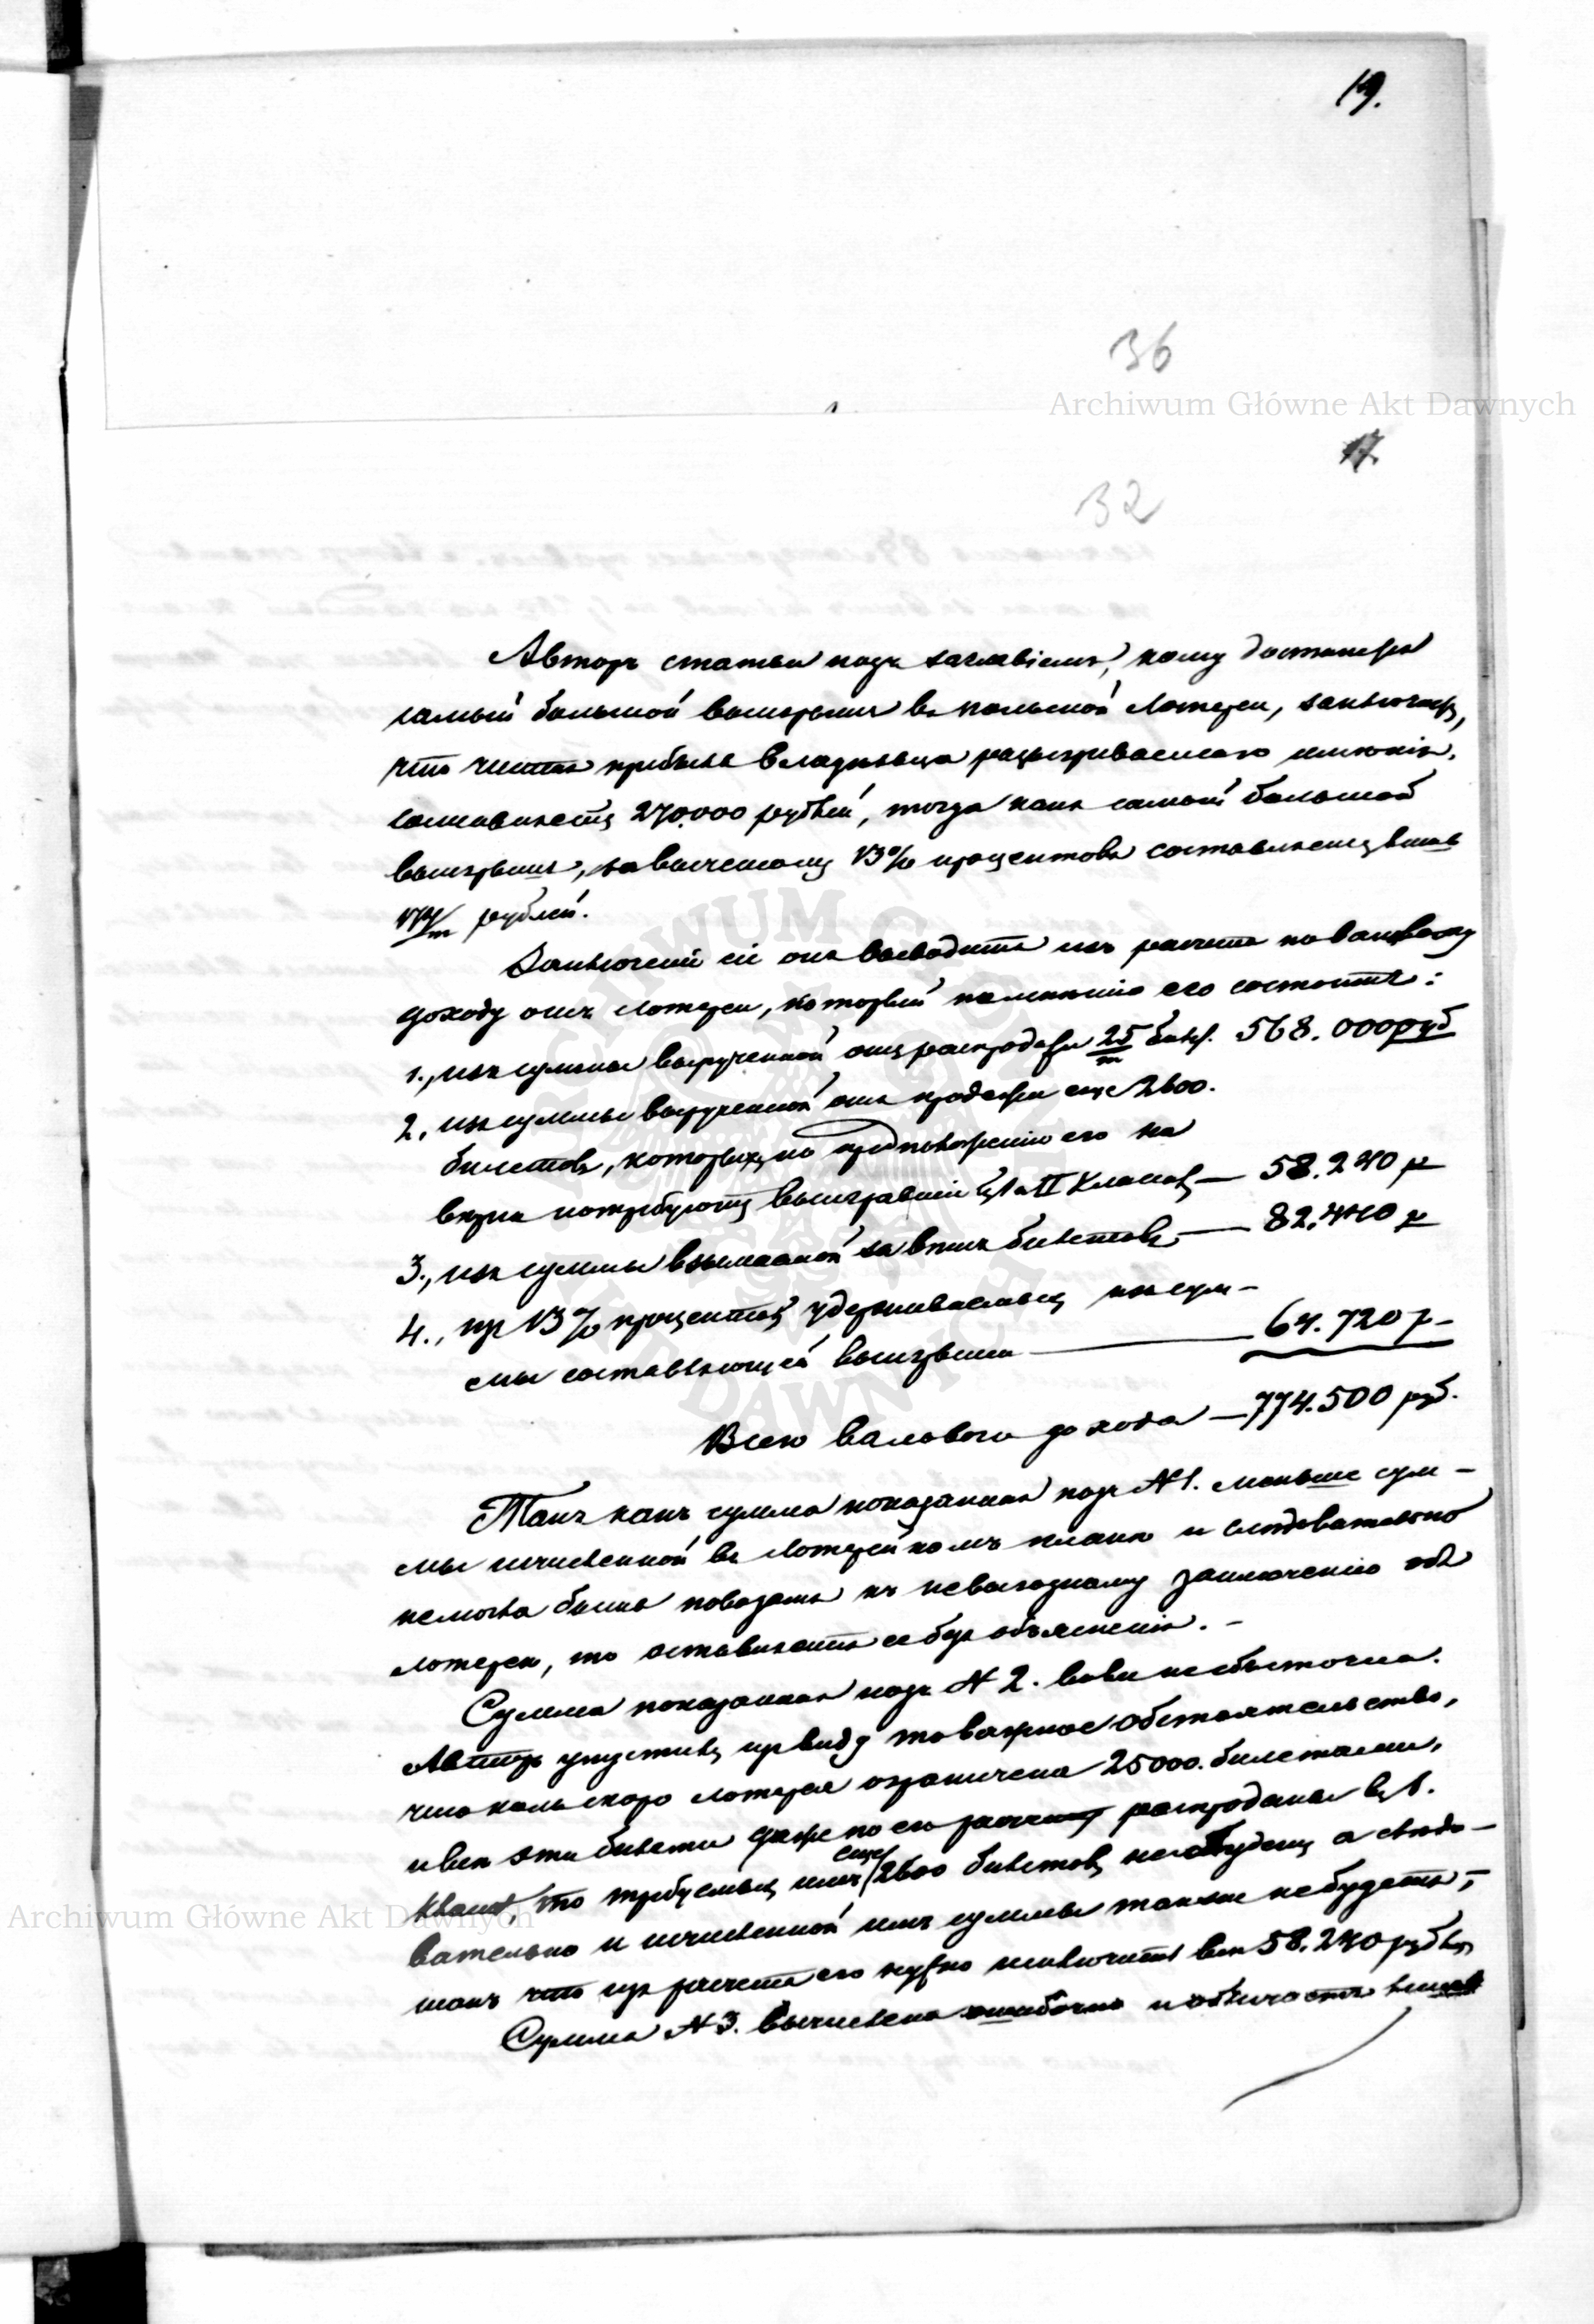 19.
36
Archiwum Główne Akt Dawnych
17.
32
Авторъ статьи подъ заглавіемъ, кому достанется
самый большой выигрышъ въ польской лотереи, заключаетъ,
что чистая прибыль владѣльца разыгриваемаго имѣнія
составляетъ 270.000 рублей, тогда какъ самый большой
выигрышъ, за вычетомъ 13% процентовъ составляетъ
174/m рублей.
Заключеніе сіе онъ выводитъ изъ расчета по валовому
доходу отъ лотереи, который по мнѣнію его состоитъ:
1., изъ суммы вырученной отъ распродажи 25/m бил. 568.000 руб
2., изъ суммы вырученной отъ продажи еще 2600.
билетовъ, которыхъ по предположенію его на
потребуютъ выигравшіе II Классъ — 58.240 р
3., изъ суммы взымаемой за билетовъ — 82.440 р
4., изъ 13% процентовъ удерживаемыхъ изъ сум-
мы составляющей выигрыши — 64.720 р
Всего валоваго дохода — 774.500 руб.
Такъ какъ сумма показанная подъ N 1. меньше сум-
мы исчисленной въ лотерейномъ планѣ и слѣдовательно
не могла бы поводомъ къ невыгодному заключенію объ
лотереи, то оставляетъ ее безъ объясненія. -
Сумма показанная подъ N 2. вовсе
Авторъ упустивъ изъ виду то важное обстоятельство,
что коль скоро лотерея ограничена 25000. билетами,
и всѣ эти билеты даже по его расчету распродана въ 1.
классѣ, то требуемыхъ имъ еще 2600 билетовъ не будетъ, а слѣдо-
Archiwum Główne Akt Dawnych
вательно и исчисленной имъ суммы также не будетъ, -
такъ что изъ расчета его нужно исключить 58.240 рублей
Сумма N 3. вычислена ошибочно и